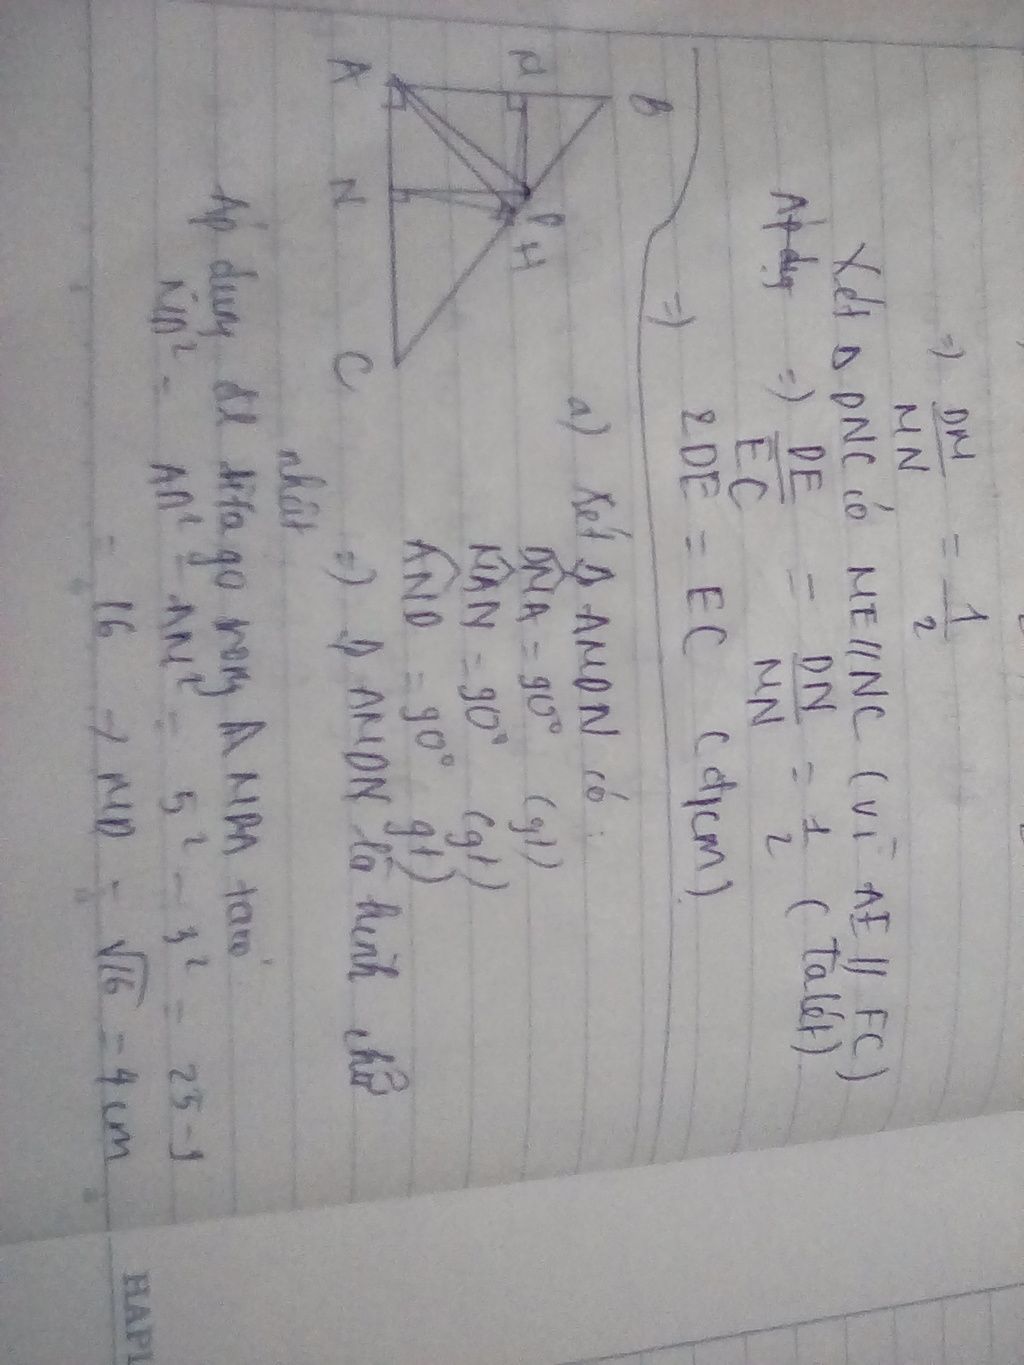 => DM/MN = 1/2
Xét Δ DNC có ME // NC (vì AE // FC)
Áp dụg => DE/EC = DN/MN = 1/2 (Talét)
=> 2DE = EC (đpcm)
B
M
A
D
H
N
C
a) Xét ◊ AMDN có:
DMA = 90° (gt)
MAN = 90° (gt)
AND = 90° gt)
=> ◊ AMDN là hình chữ
nhật
Áp dụng đl Pitago trong Δ MDA ta có
MD² = AD² - AM² = 5² - 3² = 25 - 9
= 16 → MD = √16 = 4 cm